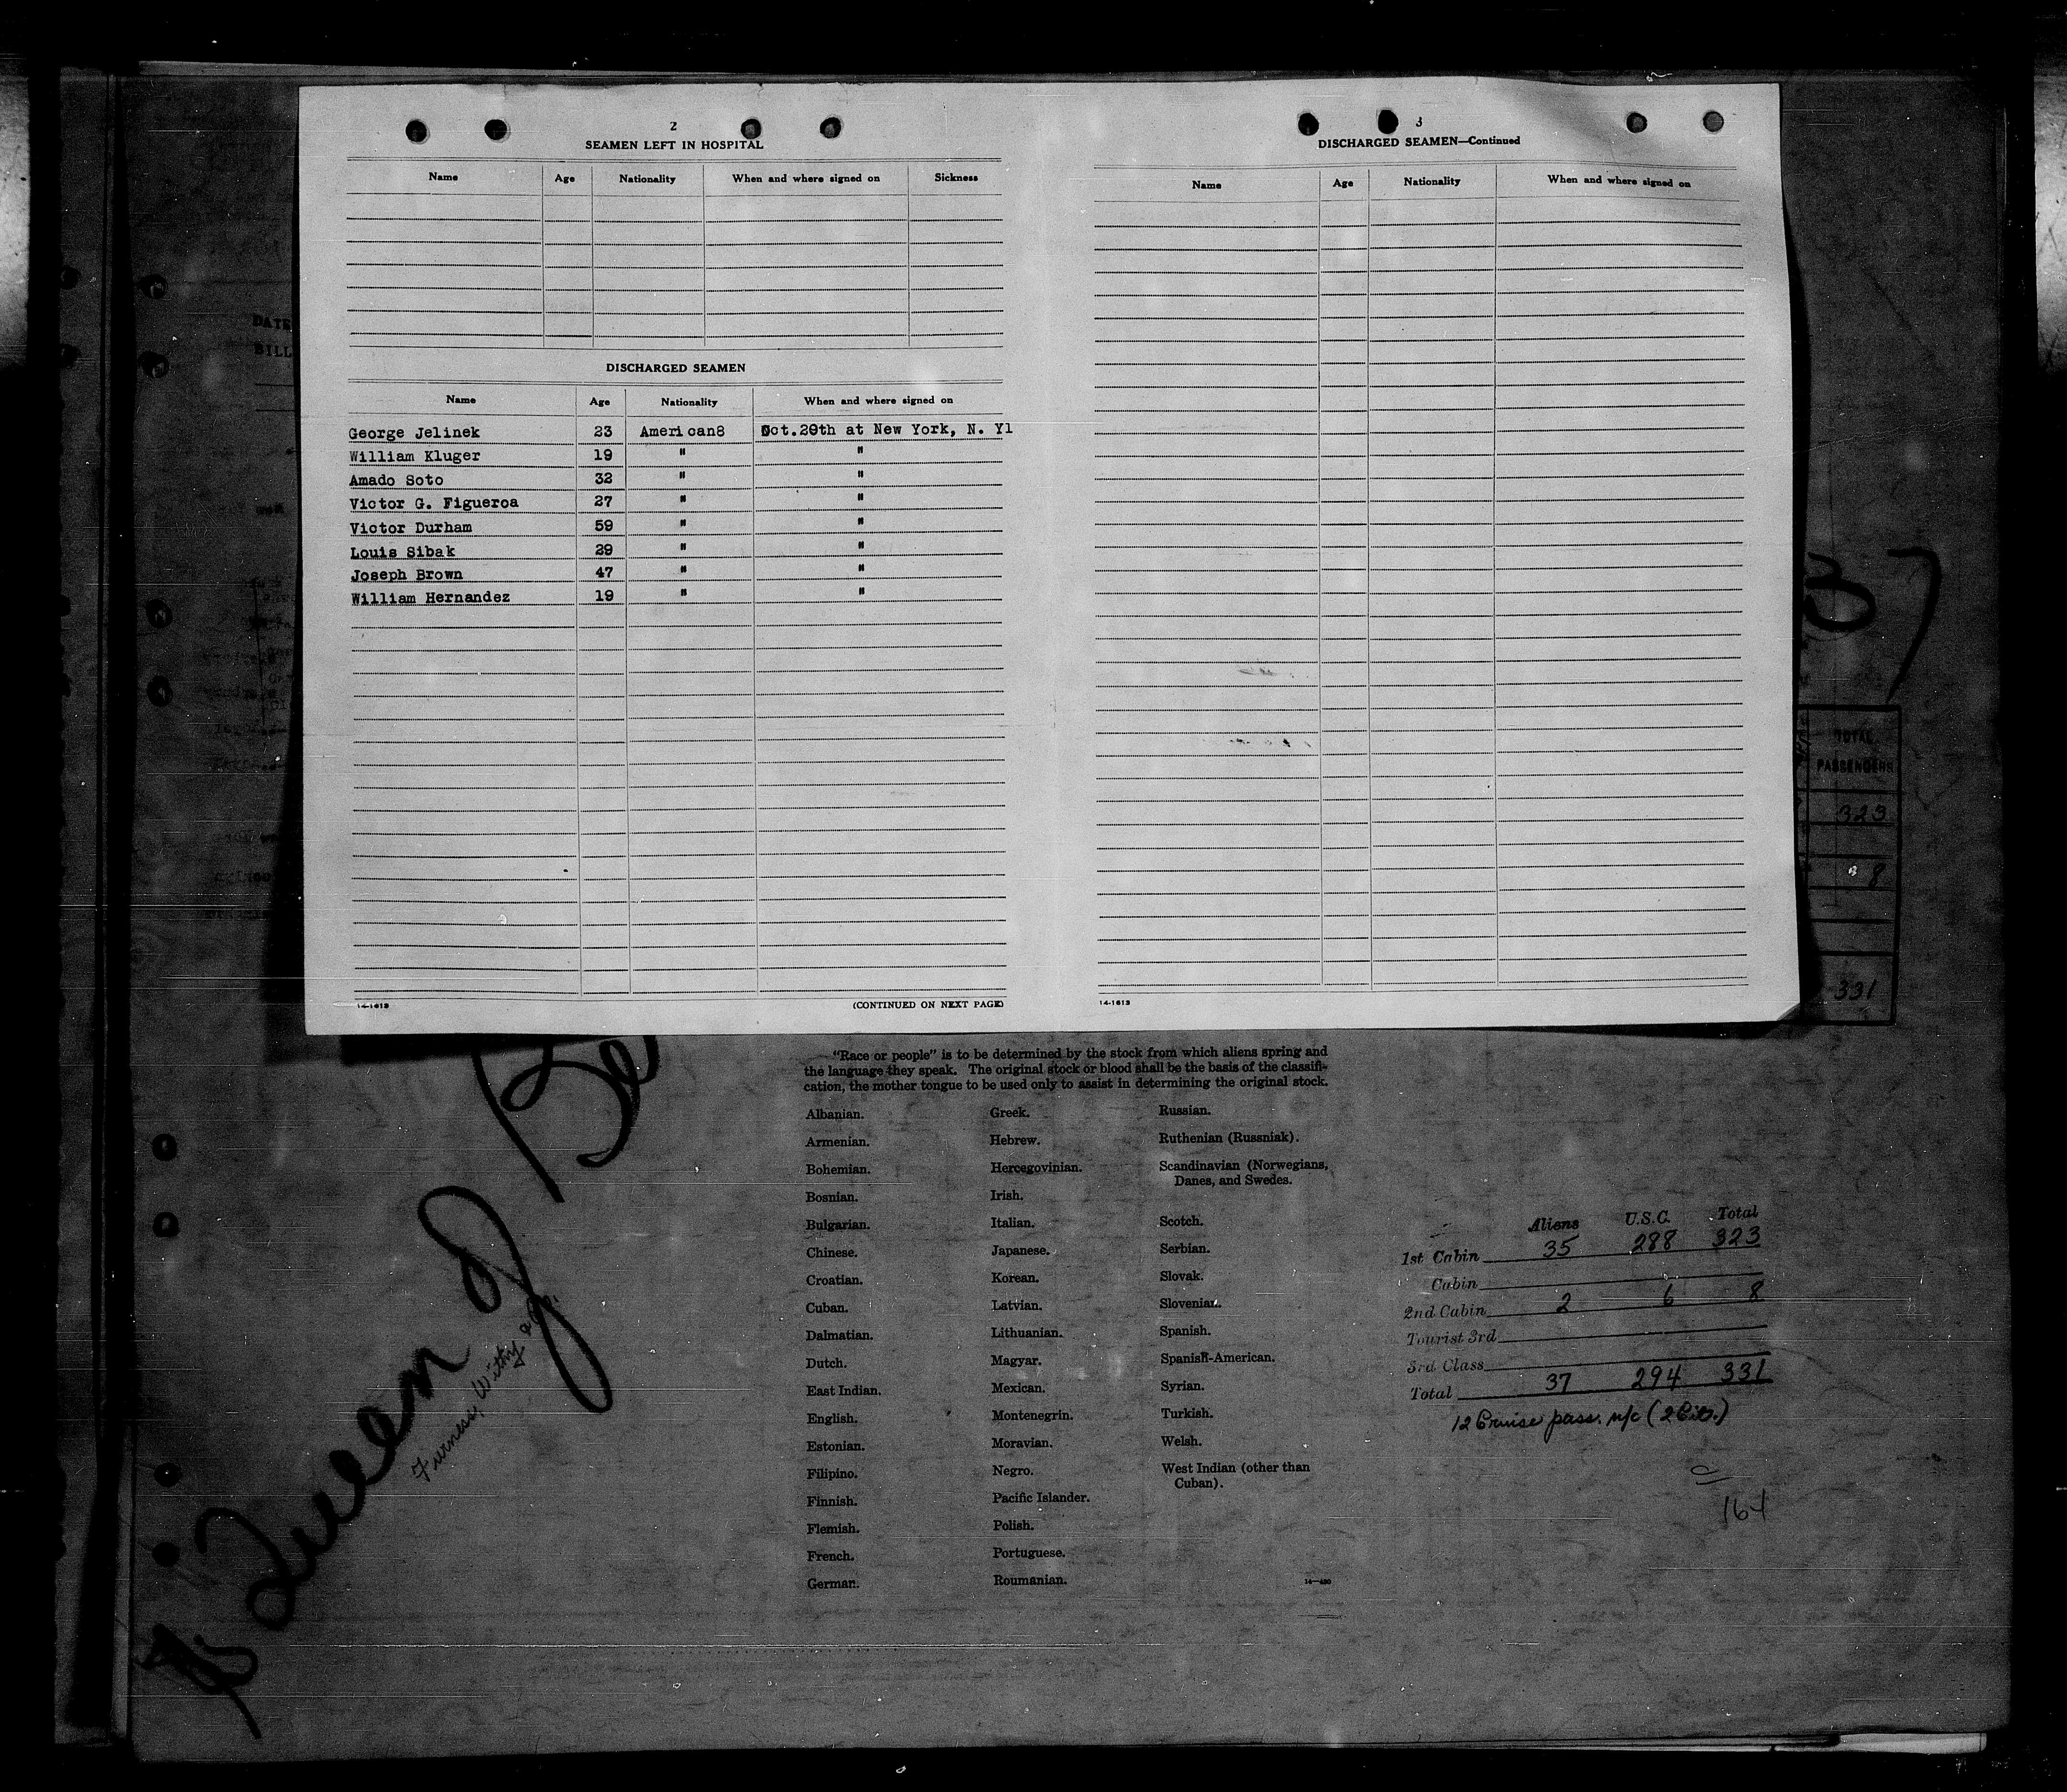 2
SEAMEN LEFT IN HOSPITAL
Name Age Nationality When and where signed on Sickness
DISCHARGED SEAMEN
Name Age Nationality When and where signed on
George Jelinek 23 American8 Oct.29th at New York, N. Yl
William Kluger 19 " "
Amado Soto 32 " "
Victor G. Figueroa 27 " "
Victor Durham 59 " "
Louis Sibak 29 " "
Joseph Brown 47 " "
William Hernandez 19 " "
14-1613 (CONTINUED ON NEXT PAGE)
3
DISCHARGED SEAMEN—Continued
Name Age Nationality When and where signed on
14-1613
DATE
BILL
TOTAL
PASSENGERS
323
8
331
"Race or people" is to be determined by the stock from which aliens spring and
the language they speak. The original stock or blood shall be the basis of the classifi-
cation, the mother tongue to be used only to assist in determining the original stock.
Albanian. Greek. Russian.
Armenian. Hebrew. Ruthenian (Russniak).
Bohemian. Hercegovinian. Scandinavian (Norwegians,
Danes, and Swedes.
Bosnian. Irish.
Bulgarian. Italian. Scotch.
Chinese. Japanese. Serbian.
Croatian. Korean. Slovak.
Cuban. Latvian. Slovenian.
Dalmatian. Lithuanian. Spanish.
Dutch. Magyar. Spanish-American.
East Indian. Mexican. Syrian.
English. Montenegrin. Turkish.
Estonian. Moravian. Welsh.
Filipino. Negro. West Indian (other than
Cuban).
Finnish. Pacific Islander.
Flemish. Polish.
French. Portuguese.
German. Roumanian.
14—430
Aliens U.S.C. Total
1st Cabin 35 288 323
Cabin
2nd Cabin 2 6 8
Tourist 3rd
3rd Class
Total 37 294 331
12 Cruise pass. n/c (2 Cits.)
164
Queen of Be
Furness, Withy